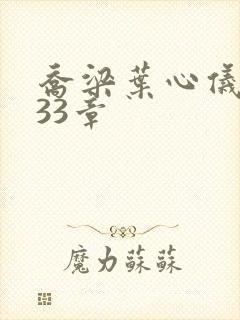 喬梁葉心儀
33章
魔力蘇蘇